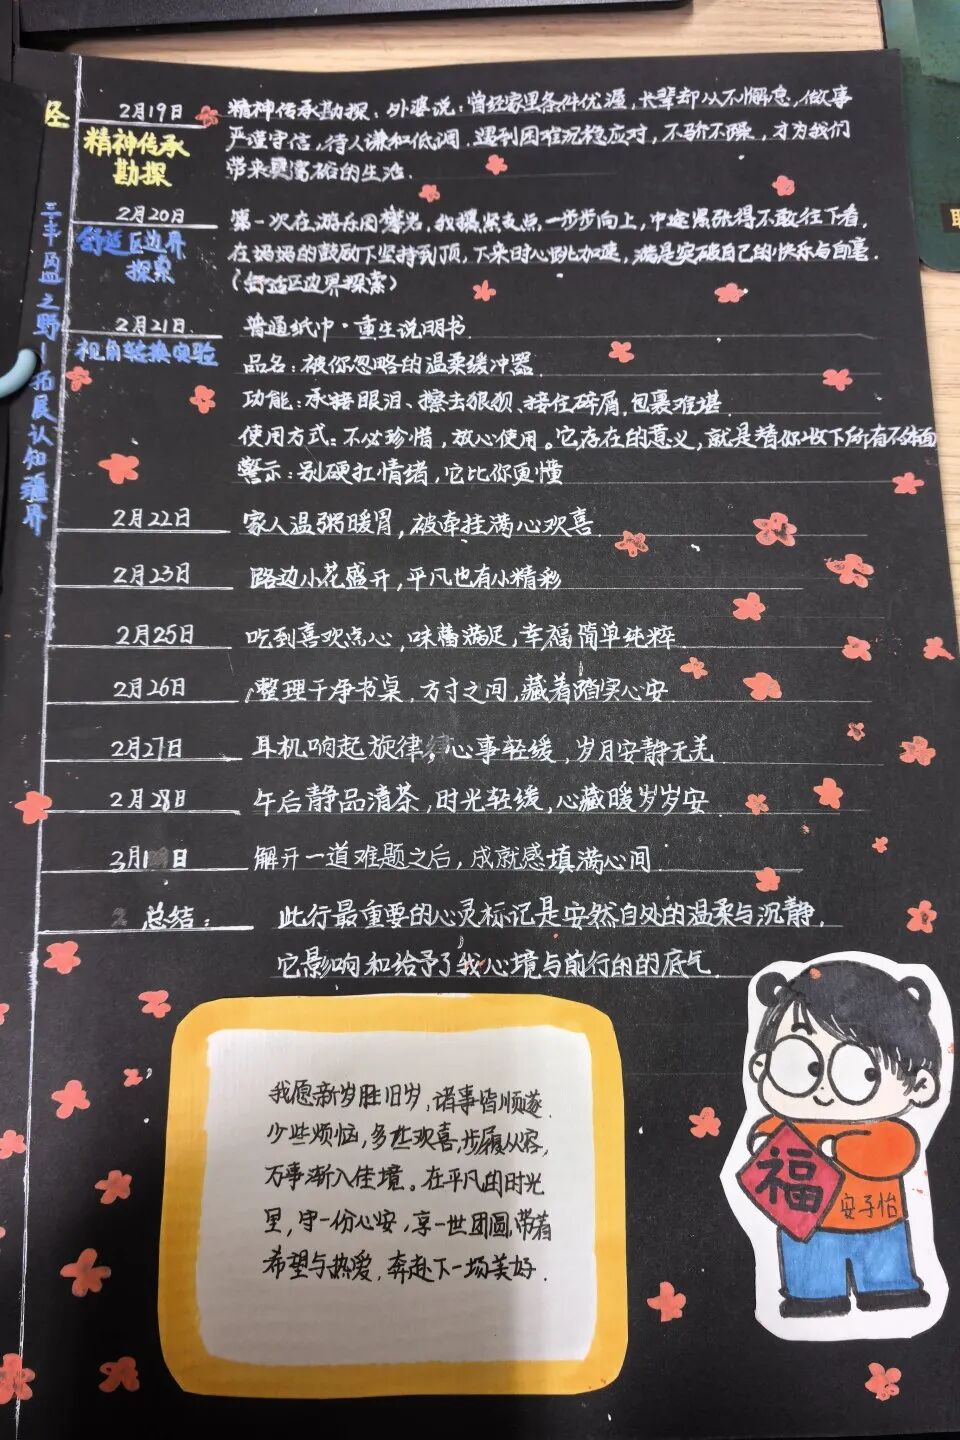 2月19日
精神传承
勘探
精神传承勘探、外婆说：曾经家里条件优渥，长辈却从不懈怠，做事
严谨守信，待人谦和低调．遇到困难沉稳应对，不骄不躁，才为我们
带来富裕的生活．
2月20日
舒适区边界
探索
第一次在游乐园攀岩，我攥紧支点，一步步向上，中途紧张得不敢往下看．
在妈妈的鼓励下坚持到顶，下来时心跳加速，满是突破自己的快乐与自豪．
（舒适区边界探索）
2月21日
视角转换实验
普通纸巾·重生说明书
品名：被你忽略的温柔缓冲器．
功能：承接眼泪、擦去狼狈、接住碎屑，包裹难堪．
使用方式：不必珍惜，放心使用。它存在的意义，就是替你收下所有不体面
警示：别硬扛情绪，它比你更懂
2月22日
家人温粥暖胃，被牵挂满心欢喜
2月23日
路边小花盛开，平凡也有小精彩
2月25日
吃到喜欢点心，味蕾满足，幸福简单纯粹
2月26日
整理干净书桌，方寸之间，藏着踏实心安
2月27日
耳机响起旋律，心事轻缓，岁月安静无羌
2月28日
午后静品清茶，时光轻缓，心藏暖岁岁安
3月1日
解开一道难题之后，成就感填满心间
总结：
此行最重要的心灵标记是安然自处的温柔与沉静．
它影响和给予了我心境与前行的的底气．
三丰盈之野|拓展认知疆界
我愿新岁胜旧岁，诸事皆顺遂．
少些烦恼，多些欢喜，步履从容，
万事渐入佳境。在平凡的时光
里，守一份心安，享一世团圆，带着
希望与热爱，奔赴下一场美好．
福
安子怡